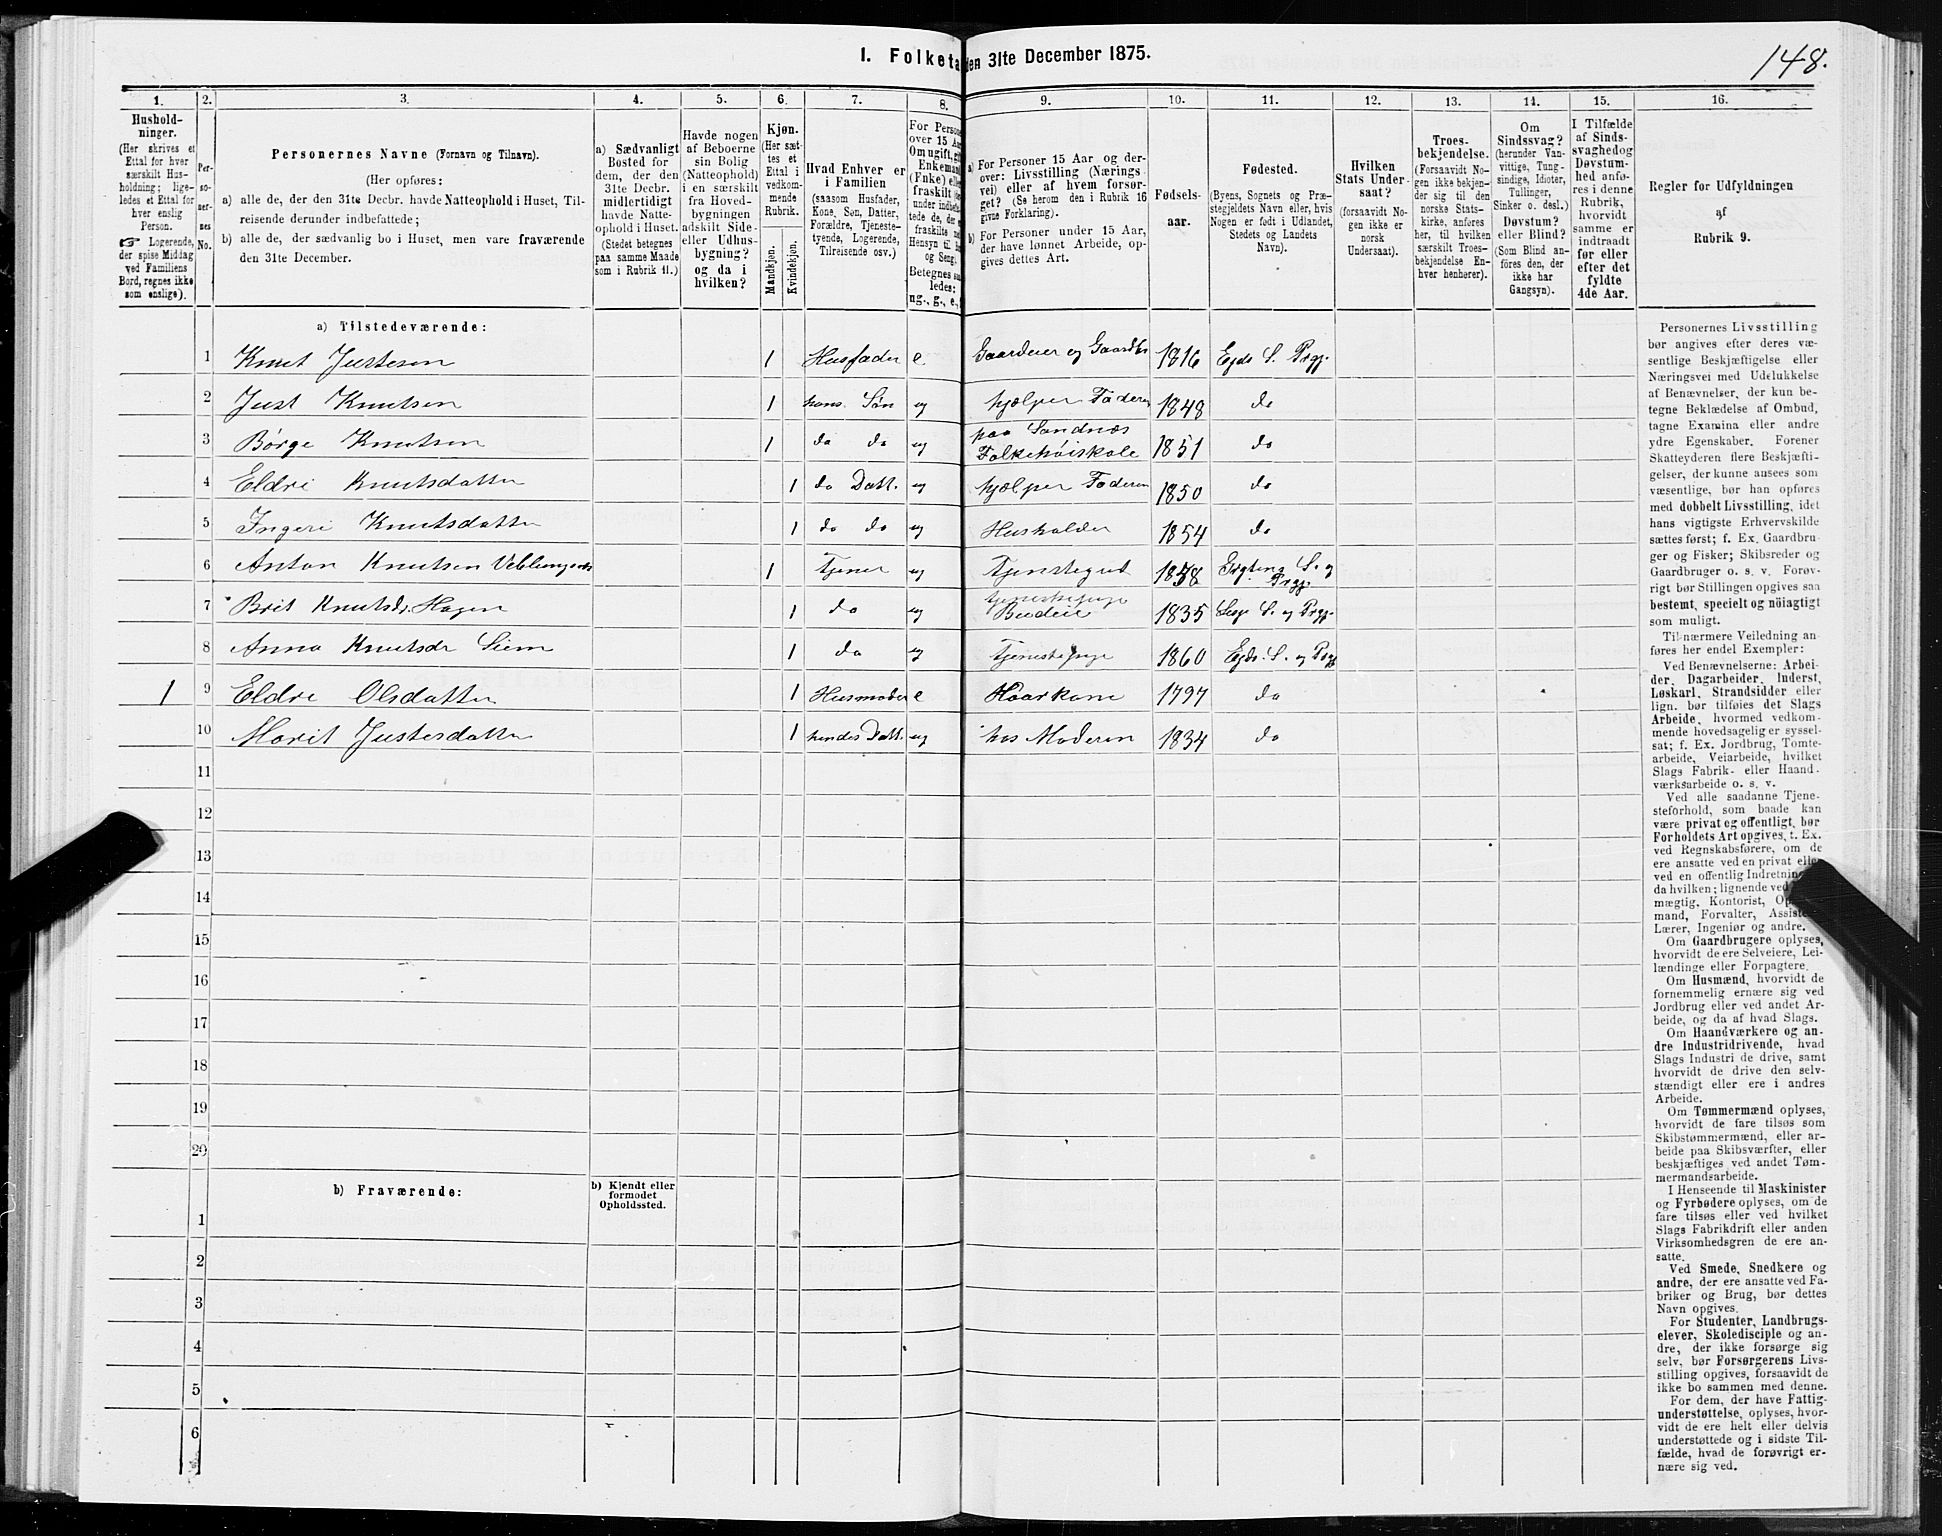 I. Folketa den 31te December 1875.
148.
1. 2. 3. 4. 5. 6. 7. 8. 9. 10. 11. 12. 13. 14. 15. 16.
Hushold-
ninger.
(Her skrives et
Ettal for hver
særskilt Hus-
holdning; lige-
ledes et Ettal for
hver enslig
Person.
☞ Logerende,
der spise Middag
ved Familiens
Bord, regnes ikke
som enslige).
Per-
so-
ner-
nes
No.
Personernes Navne (Fornavn og Tilnavn).
(Her opføres:
a) alle de, der den 31te Decbr. havde Natteophold i Huset, Til-
reisende derunder indbefattede;
b) alle de, der sædvanlig bo i Huset, men vare fraværende
den 31te December.
a) Sædvanligt
Bosted for
dem, der den
31te Decbr.
midlertidigt
havde Natte-
ophold i Huset.
(Stedet betegnes
paa samme Maade
som i Rubrik 11.)
Havde nogen
af Beboerne
sin Bolig
(Natteophold)
i en særskilt
fra Hoved-
bygningen
adskilt Side-
eller Udhus-
bygning?
og da i
hvilken?
Kjøn.
(Her sæt-
tes et
Ettal i
vedkom-
mende
Rubrik.
Mandkjøn.
Kvindekjøn.
Hvad Enhver er
i Familien
(saasom Husfader,
Kone, Søn, Datter,
Forældre, Tjeneste-
tyende, Logerende,
Tilreisende osv.)
For Persone
over 15 Aa
Om ugift, gift
Enkemand
(Enke) elle
fraskilt
under indbefat-
tede de, der
fraskilte
Hensyn til B
og Seng.
Betegnes saa-
ledes:
ug., g., e.,
a) For Personer 15 Aar og der-
over: Livsstilling (Nærings-
vei) eller af hvem forsør-
get? (Se herom den i Rubrik 16
givne Forklaring).
b) For Personer under 15 Aar,
der have lønnet Arbeide, op-
gives dettes Art.
Fødsels-
aar.
Fødested.
(Byens, Sognets og Præ-
stegjeldets Navn eller, hvis
Nogen er født i Udlandet,
Stedets og Landets
Navn).
Hvilken
Stats Under-
saat?
(forsaavidt No-
gen ikke er
norsk
Undersaat).
Troes-
bekjendelse.
(Forsaavidt No-
gen ikke bekjen-
der sig til den
norske Stats-
kirke, anføres
her, til hvilken
særskilt Troes-
bekjendelse En-
hver henhører).
Om
Sindssvag?
(herunder Van-
vittige, Tung-
sindige, Idioter,
Tullinger,
Sinker o. desl.)
Døvstum?
eller Blind?
(Som Blind an-
føres den, der
ikke har
Gangsyn).
I Tilfælde
af Sinds-
svaghed og
Døvstum-
hed anfø-
res i denne
Rubrik,
hvorvidt
samme er
indtraadt
før eller
efter det
fyldte
4de Aar.
Regler for Udfyldningen
af
Rubrik 9.
a) Tilstedeværende:
1 Knut Justesen 1 Husfader e Gaardeier og Gaardbr 1816 Ejds S. Prgj.
2 Just Knutsen 1 hans Søn ug hjælper Faderen 1848 do
3 Børge Knutsen 1 do do ug paa Sandnæs Folkehøiskole 1851 do
4 Eldri Knutsdatter 1 do Datt. ug hjælper Faderen 1850 do
5 Ingeri Knutsdatter 1 do do ug Husholder 1854 do
6 Anton Knutsen Veblungsnæs 1 Tjener ug Tjenstegut 1858 Grytens S. og Prgj.
7 Brit Knutsdr. Hagen 1 do ug tjenestepige Budeie 1835 Lesje S. og Prgj.
8 Anna Knutsdr Siem 1 do ug Tjenestepige 1860 Ejds. S. og Prgj
1 9 Eldri Olsdatter 1 Husmoder e Kaarkone 1797 do
10 Marit Justesdatter 1 hendes Datt. ug hos Moderen 1834 do
11
12
13
14
15
16
17
18
19
20
b) Fraværende:
b) Kjendt eller
formodet
Opholdssted.
1
2
3
4
5
6
Personernes Livsstilling
bør angives efter deres væ-
sentlige Beskjæftigelse eller
Næringsvei med Udelukkelse
af Benævnelser, der kun be-
tegne Beklædelse af Ombud,
tagne Examina eller andre
ydre Egenskaber. Forener
Skatteyderen flere Beskjæfti-
gelser, der kunne ansees som
væsentlige, bør han opføres
med dobbelt Livsstilling, idet
hans vigtigste Erhvervskilde
sættes først; f. Ex. Gaardbru-
ger og Fisker; Skibsreder og
Gaardbruger o. s. v. Forøv-
rigt bør Stillingen opgives saa
bestemt, specielt og nøiagtigt
som muligt.
Til nærmere Veiledning an-
føres her endel Exempler:
Ved Benævnelserne: Arbei-
der, Dagarbeider, Inderst,
Løskarl, Strandsidder eller
lign. bør tilføies det Slags
Arbeide, hvormed vedkom-
mende hovedsagelig er syssel-
sat; f. Ex. Jordbrug, Tomte-
arbeide, Veiarbeide, hvilket
Slags Fabrik- eller Haand-
værksarbeide o. s. v.
Ved alle saadanne Tjene-
steforhold, som baade kan
være privat og offentligt, bør
Forholdets Art opgives, f. Ex.
ved Regnskabsførere, om de
ere ansatte ved en privat eller
ved en offentlig Indretning
da hvilken; lignende ved
mægtig, Kontorist, Op
mand, Forvalter, Assiste
Lærer, Ingeniør og andre.
Om Gaardbrugere oplyses,
hvorvidt de ere Selveiere, Lei-
lændinge eller Forpagtere.
Om Husmænd, hvorvidt de
fornemmelig ernære sig ved
Jordbrug eller ved andet Ar-
beide, og da af hvad Slags.
Om Haandværkere og an-
dre Industridrivende, hvad
Slags Industri de drive, samt
hvorvidt de drive den selv-
stændigt eller ere i andres
Arbeide.
Om Tømmermænd oplyses,
hvorvidt de fare tilsøs som
Skibstømmermænd, eller ar-
beide paa Skibsværfter, eller
beskjæftiges ved andet Tøm-
mermandsarbeide.
I Henseende til Maskinister
og Fyrbødere oplyses, om de
fare tilsøs eller ved hvilket
Slags Fabrikdrift eller anden
Virksomhedsgren de ere an-
satte.
Ved Smede, Snedkere og
andre, der ere ansatte ved Fa-
briker og Brug, bør dettes
Navn opgives.
For Studenter, Landbrugs-
elever, Skoledisciple og an-
dre, der ikke forsørge sig
selv, bør Forsørgerens Livs-
stilling opgives, forsaavidt de
ikke bo sammen med denne.
For dem, der have Fattig-
understøttelse, oplyses, hvor-
vidt de ere helt eller delvis
understøttede og i sidste Til-
fælde, hvad de forøvrigt er-
nære sig ved.